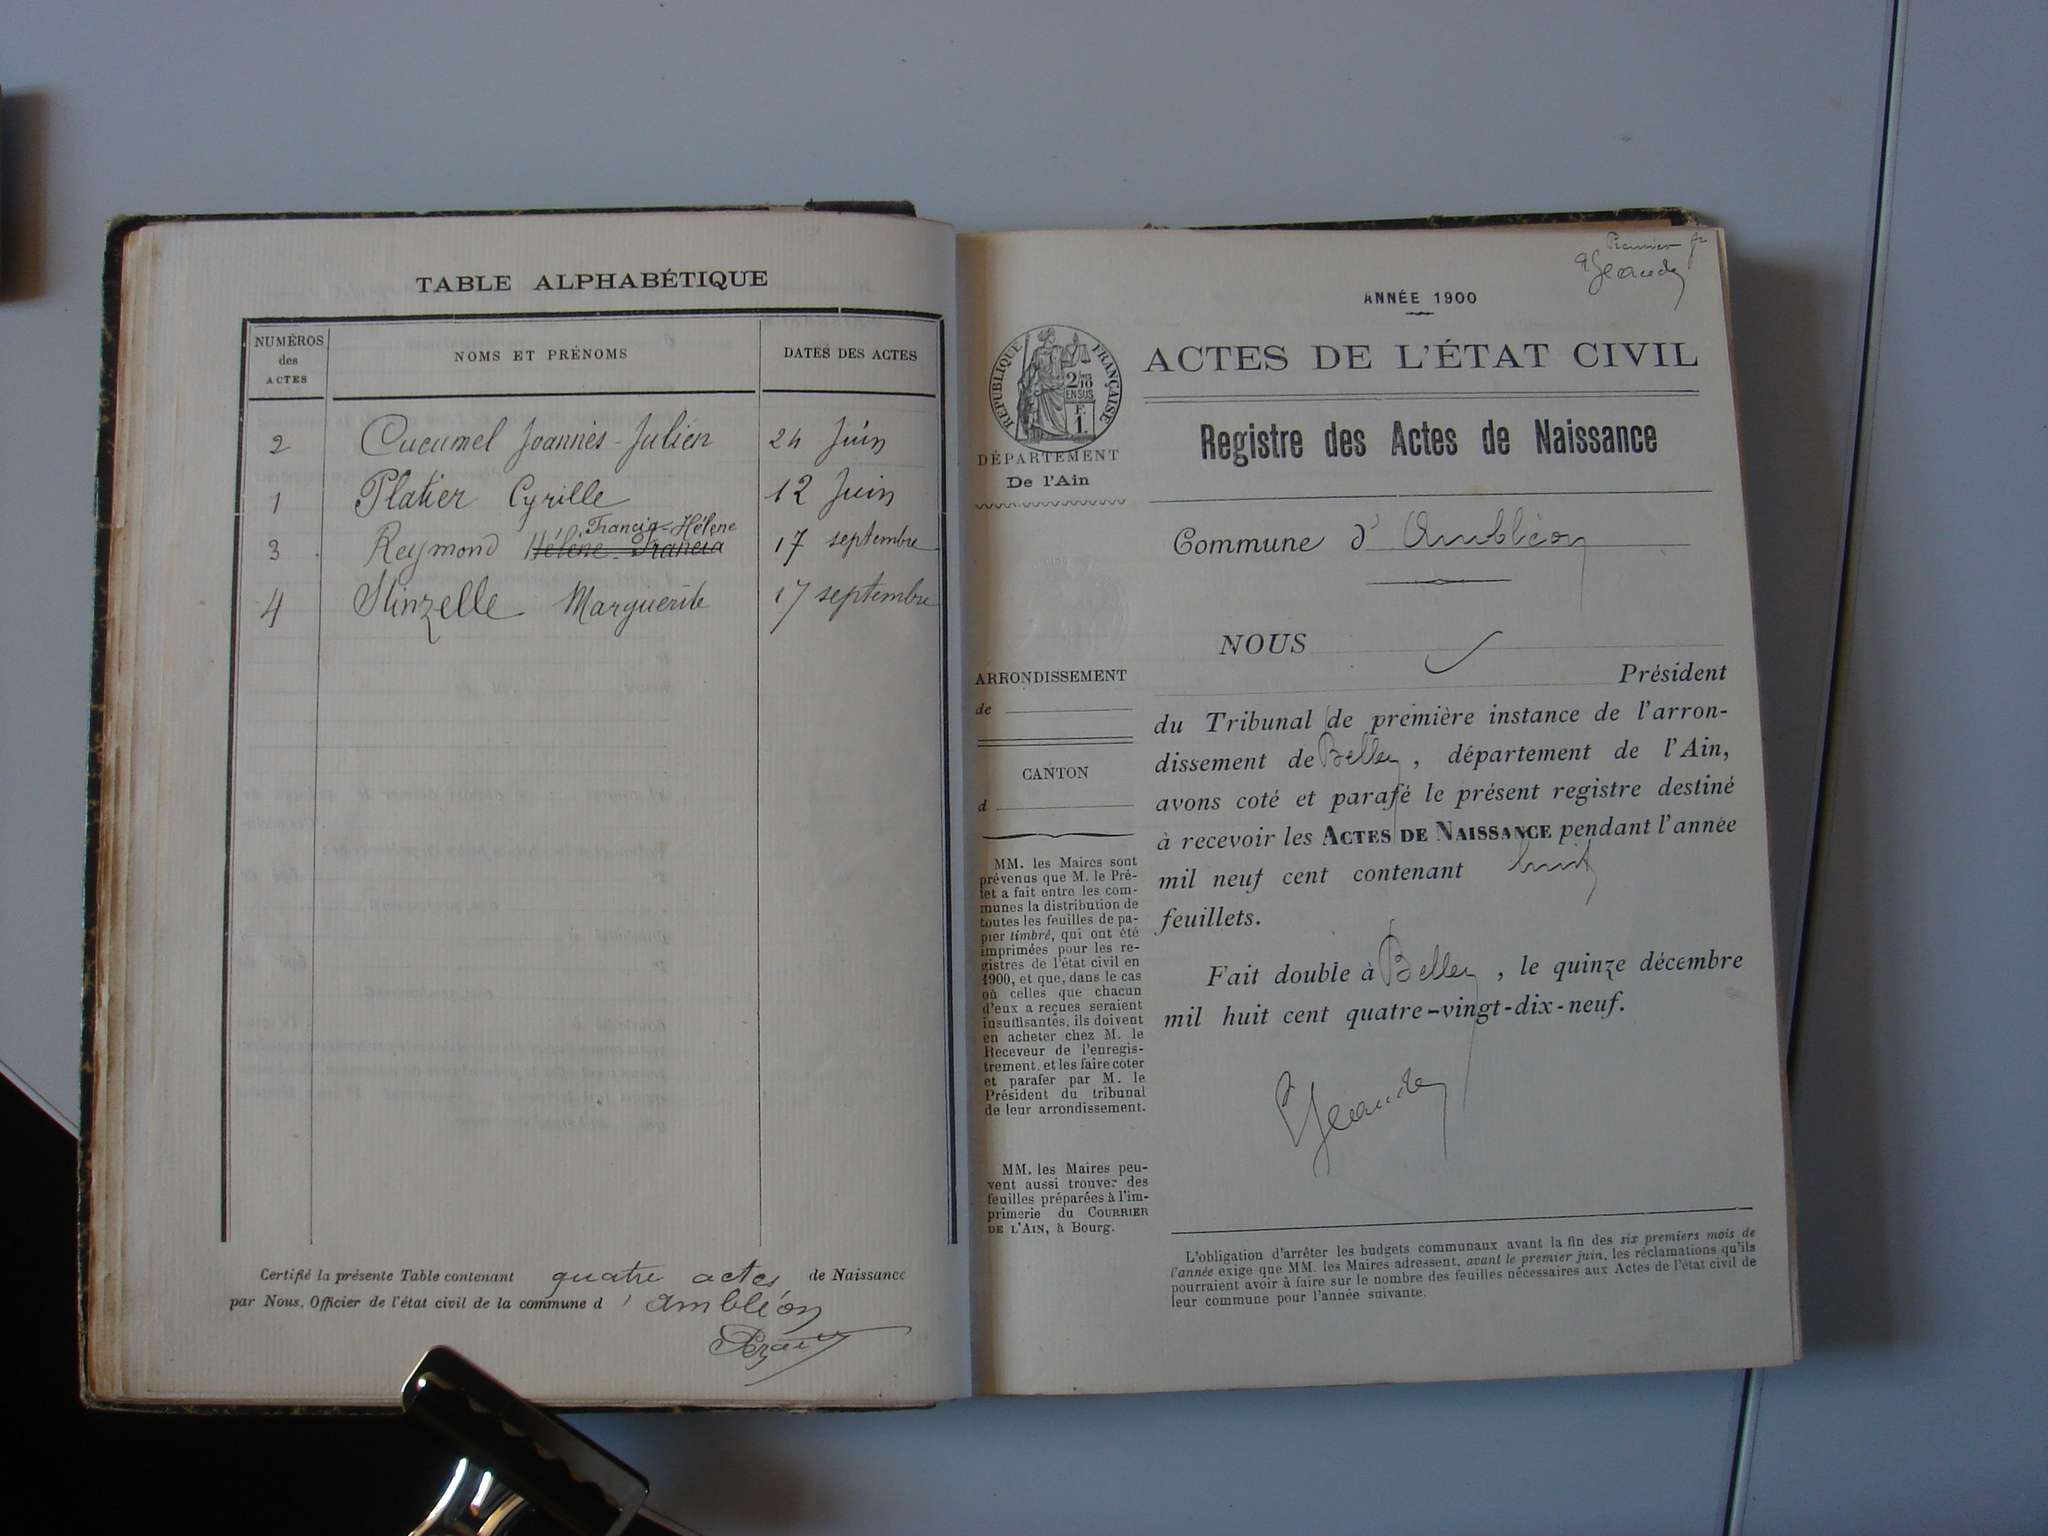 TABLE ALPHABÉTIQUE
NUMÉROS des ACTES
NOMS ET PRÉNOMS
DATES DES ACTES
2 Cucumel Joannès-Julien 24 Juin
1 Platier Cyrille 12 Juin
Francia-Hélène
3 Reymond Hélène-Francia 17 septembre
4 Stinzelle Marguerite 17 septembre
Certifié la présente Table contenant quatre actes de Naissance
par Nous, Officier de l'état civil de la commune d'Ambléon
Premier
ANNÉE 1900
RÉPUBLIQUE FRANÇAISE
2/10
EN SUS
F.
1.
DÉPARTEMENT
De l'Ain
ACTES DE L'ÉTAT CIVIL
Registre des Actes de Naissance
Commune d'Ambléon
ARRONDISSEMENT
de
CANTON
d
MM. les Maires sont
prévenus que M. le Pré-
fet a fait entre les com-
munes la distribution de
toutes les feuilles de pa-
pier timbré, qui ont été
imprimées pour les re-
gistres de l'état civil en
1900, et que, dans le cas
où celles que chacun
d'eux a reçues seraient
insuffisantes, ils doivent
en acheter chez M. le
Receveur de l'enregis-
trement, et les faire coter
et parafer par M. le
Président du tribunal
de leur arrondissement.
MM. les Maires peu-
vent aussi trouver des
feuilles préparées à l'im-
primerie du COURRIER
DE L'AIN, à Bourg.
NOUS
Président
du Tribunal de première instance de l'arron-
dissement de Belley, département de l'Ain,
avons coté et parafé le présent registre destiné
à recevoir les ACTES DE NAISSANCE pendant l'année
mil neuf cent contenant huit
feuillets.
Fait double à Belley, le quinze décembre
mil huit cent quatre-vingt-dix-neuf.
L'obligation d'arrêter les budgets communaux avant la fin des six premiers mois de
l'année exige que MM. les Maires adressent, avant le premier juin, les réclamations qu'ils
pourraient avoir à faire sur le nombre des feuilles nécessaires aux Actes de l'état civil de
leur commune pour l'année suivante.